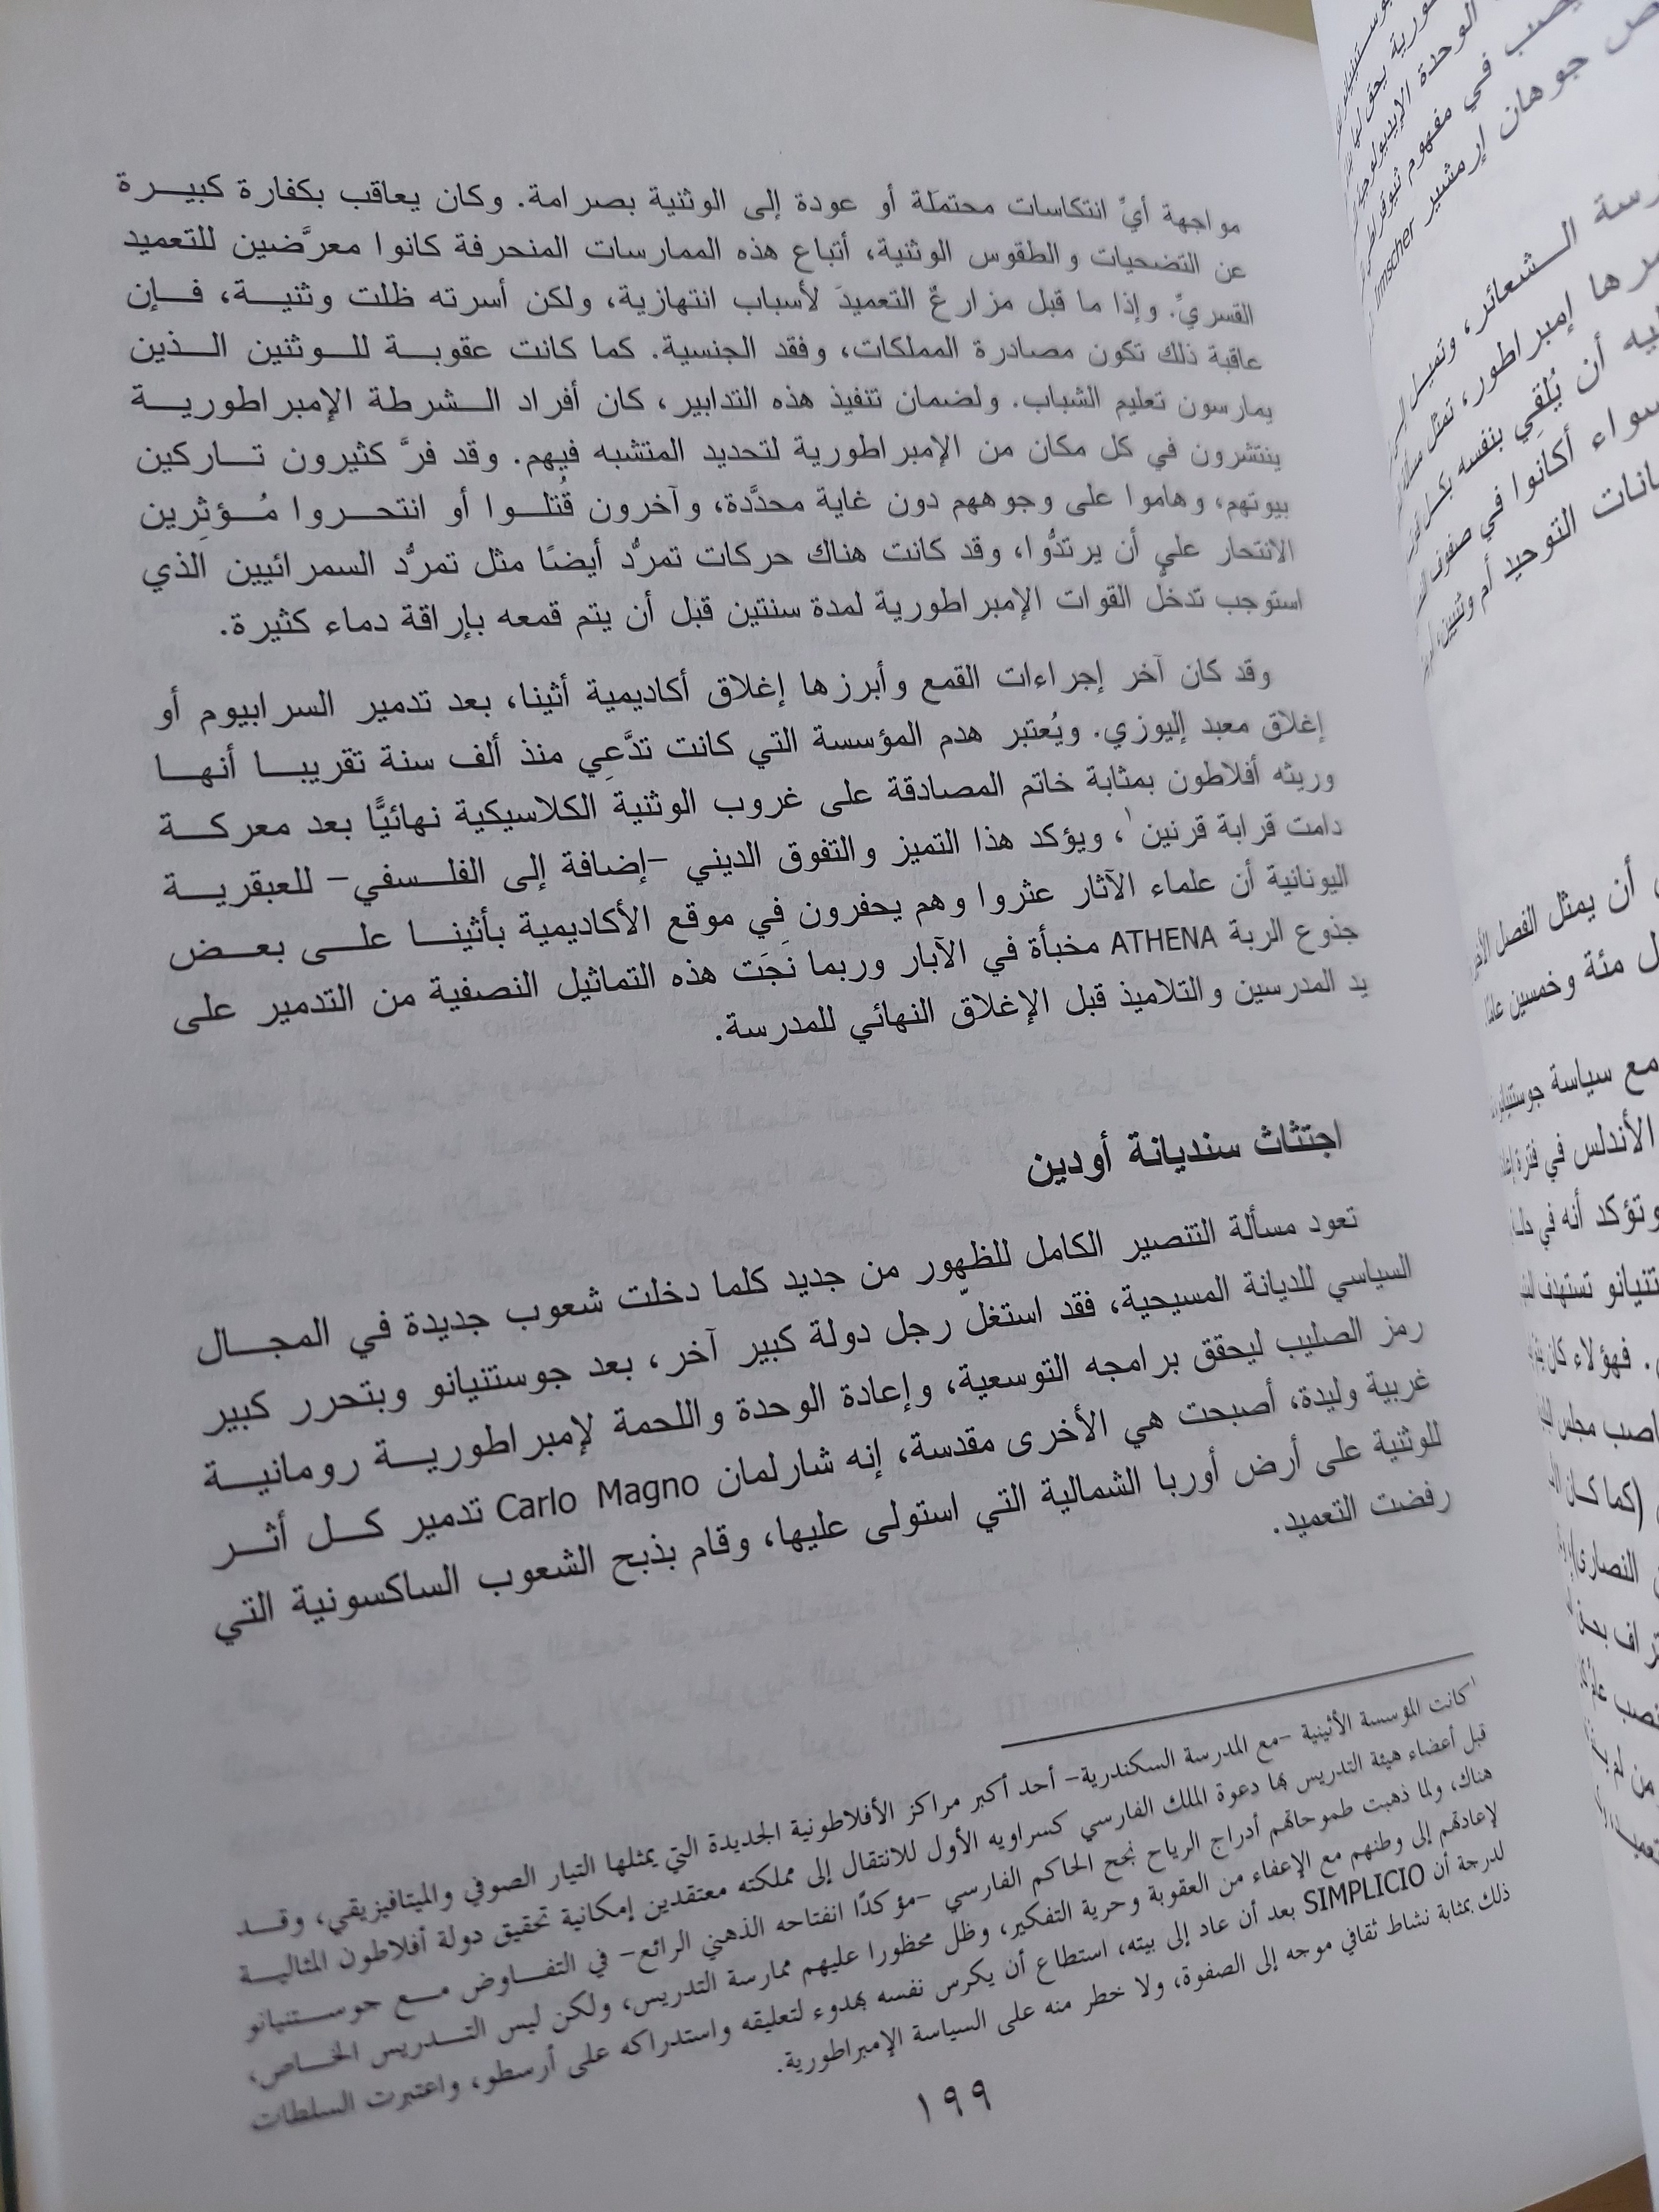 مواجهة أيِّ انتكاسات محتملة أو عودة إلى الوثنية بصرامة. وكان يعاقب بكفارة كبيرة
عن التضحيات والطقوس الوثنية، أتباع هذه الممارسات المنحرفة كانوا معرَّضين للتعميد
القسريِّ. وإذا ما قبل مزارعٌ التعميدَ لأسباب انتهازية، ولكن أسرته ظلت وثنية، فإن
عاقبة ذلك تكون مصادرة المملكات، وفقد الجنسية. كما كانت عقوبة للوثنين الذين
يمارسون تعليم الشباب. ولضمان تنفيذ هذه التدابير، كان أفراد الشرطة الإمبراطورية
ينتشرون في كل مكان من الإمبراطورية لتحديد المتشبه فيهم. وقد فرَّ كثيرون تاركين
بيوتهم، وهاموا على وجوههم دون غاية محدَّدة، وآخرون قُتلوا أو انتحروا مُؤثِرين
الانتحار على أن يرتدُّوا، وقد كانت هناك حركات تمرُّد أيضًا مثل تمرُّد السمرائيين الذي
استوجب تدخلَ القوات الإمبراطورية لمدة سنتين قبل أن يتم قمعه بإراقة دماء كثيرة.
وقد كان آخر إجراءات القمع وأبرزها إغلاق أكاديمية أثينا، بعد تدمير السرابيوم أو
إغلاق معبد إليوزي. ويُعتبر هدم المؤسسة التي كانت تدَّعِي منذ ألف سنة تقريبا أنها
وريثه أفلاطون بمثابة خاتم المصادقة على غروب الوثنية الكلاسيكية نهائيًّا بعد معركة
دامت قرابة قرنين١، ويؤكد هذا التميز والتفوق الديني -إضافة إلى الفلسفي- للعبقرية
اليونانية أن علماء الآثار عثروا وهم يحفرون في موقع الأكاديمية بأثينا على بعض
جذوع الربة ATHENA مخبأة في الآبار وربما نَجَت هذه التماثيل النصفية من التدمير على
يد المدرسين والتلاميذ قبل الإغلاق النهائي للمدرسة.
اجتثاث سنديانة أودين
تعود مسألة التنصير الكامل للظهور من جديد كلما دخلت شعوب جديدة في المجال
السياسي للديانة المسيحية، فقد استغلّ رجل دولة كبير آخر، بعد جوستنيانو وبتحرر كبير
رمز الصليب ليحقق برامجه التوسعية، وإعادة الوحدة واللحمة لإمبراطورية رومانية
غربية وليدة، أصبحت هي الأخرى مقدسة، إنه شارلمان Carlo Magno تدمير كل أثر
للوثنية على أرض أوربا الشمالية التي استولى عليها، وقام بذبح الشعوب الساكسونية التي
رفضت التعميد.
١ كانت المؤسسة الأثينية -مع المدرسة السكندرية- أحد أكبر مراكز الأفلاطونية الجديدة التي يمثلها التيار الصوفي والميتافيزيقي، وقد
قبل أعضاء هيئة التدريس بها دعوة الملك الفارسي كسراويه الأول للانتقال إلى مملكته معتقدين إمكانية تحقيق دولة أفلاطون المثالية
هناك، ولما ذهبت طموحاتهم أدراج الرياح نجح الحاكم الفارسي -مؤكدًا انفتاحه الذهني الرائع- في التفاوض مع جوستنيانو
لإعادتهم إلى وطنهم مع الإعفاء من العقوبة وحرية التفكير، وظل محظورا عليهم ممارسة التدريس، ولكن ليس التدريس الخاص،
لدرجة أن SIMPLICIO بعد أن عاد إلى بيته، استطاع أن يكرس نفسه بهدوء لتعليقه واستدراكه على أرسطو، واعتبرت السلطات
ذلك بمثابة نشاط ثقافي موجه إلى الصفوة، ولا خطر منه على السياسة الإمبراطورية.
١٩٩
الوحدة الإيديولوجية
في مفهوم ثيوقراطي
جوهان إرمشير Irmscher
الشعائر، وتميل إلى
إمبراطور، تمثل مسألة
أن يُلقِي بنفسه بكل
سواء أكانوا في صفوف
التوحيد أم وثنيين
أن يمثل الفصل
مئة وخمسين عامًا
مع سياسة
الأندلس في فترة
وتؤكد أنه في
تستهدف
فهؤلاء كان
مجلس
(كما كان
النصارى)
من لم